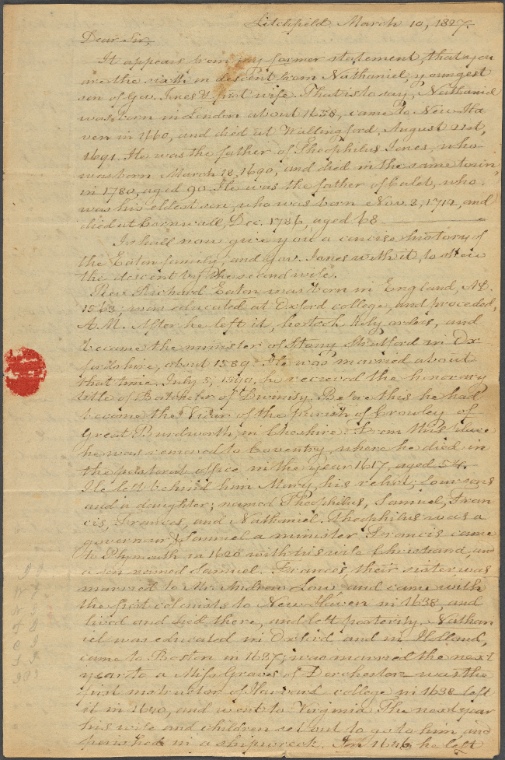 Litchfield March 10, 1827.
Dear Sir,
It appears from my former statement, that you
are the sixth in descent from Nathaniel, youngest
son of Gov. Jones by first wife. That is to say, Nathaniel
was born in London about 1638, came to New Ha
ven in 1660, and died at Wallingford, August 21st,
1691. He was the father of Theophilus Jones, who
was born March 18, 1690, and died in the same town,
in 1780, aged 90. He was the father of Caleb, who
was his eldest son, who was born Nov. 3, 1712, and
died at Cornwall, Dec. 1786, aged 68
I shall now give you a concise history of
the Eaton family, and Gov. Jones with it, to show
the descent by the second wife.
Rev. Richard Eaton was born in England, AD.
1563; was educated at Oxford college, and proceeded,
A.M. After he left it, he took holy orders, and
became the minister of Stany Stratford in Ox
fordshire, about 1589. He was married about
that time. July 5, 1599, he received the honorary
title of Batchelor of Divinity. Before this he had
become the Vicar of the parish of
Great Budworth, in Cheshire. From this place
he was removed to Coventry, where he died in
the pastoral office in the year 1617, aged 54.
He left behind him Mary, his relict; four sons
and a daughter; named Theophilus, Samuel, Fran
cis, Frances, and Nathaniel. Theophilus was a
governor; Samuel a minister; Francis came
to Plymouth in 1620 with his wife and
a son named Samuel. Frances their sister was
married to Mr. Andrew Low and came with
the first colonists to New Haven in 1638, and
lived and died there, and left posterity. Nathan
iel was educated in Oxford and in Holland,
came to Boston in 1637; was married the next
year to a Miss Graves of Dorchester was the
first instructor of Harvard college in 1638 left
it in 1640, and went to Virginia. The next year
his wife and children set out to go to him, and
perished in a shipwreck. In 1646, he left